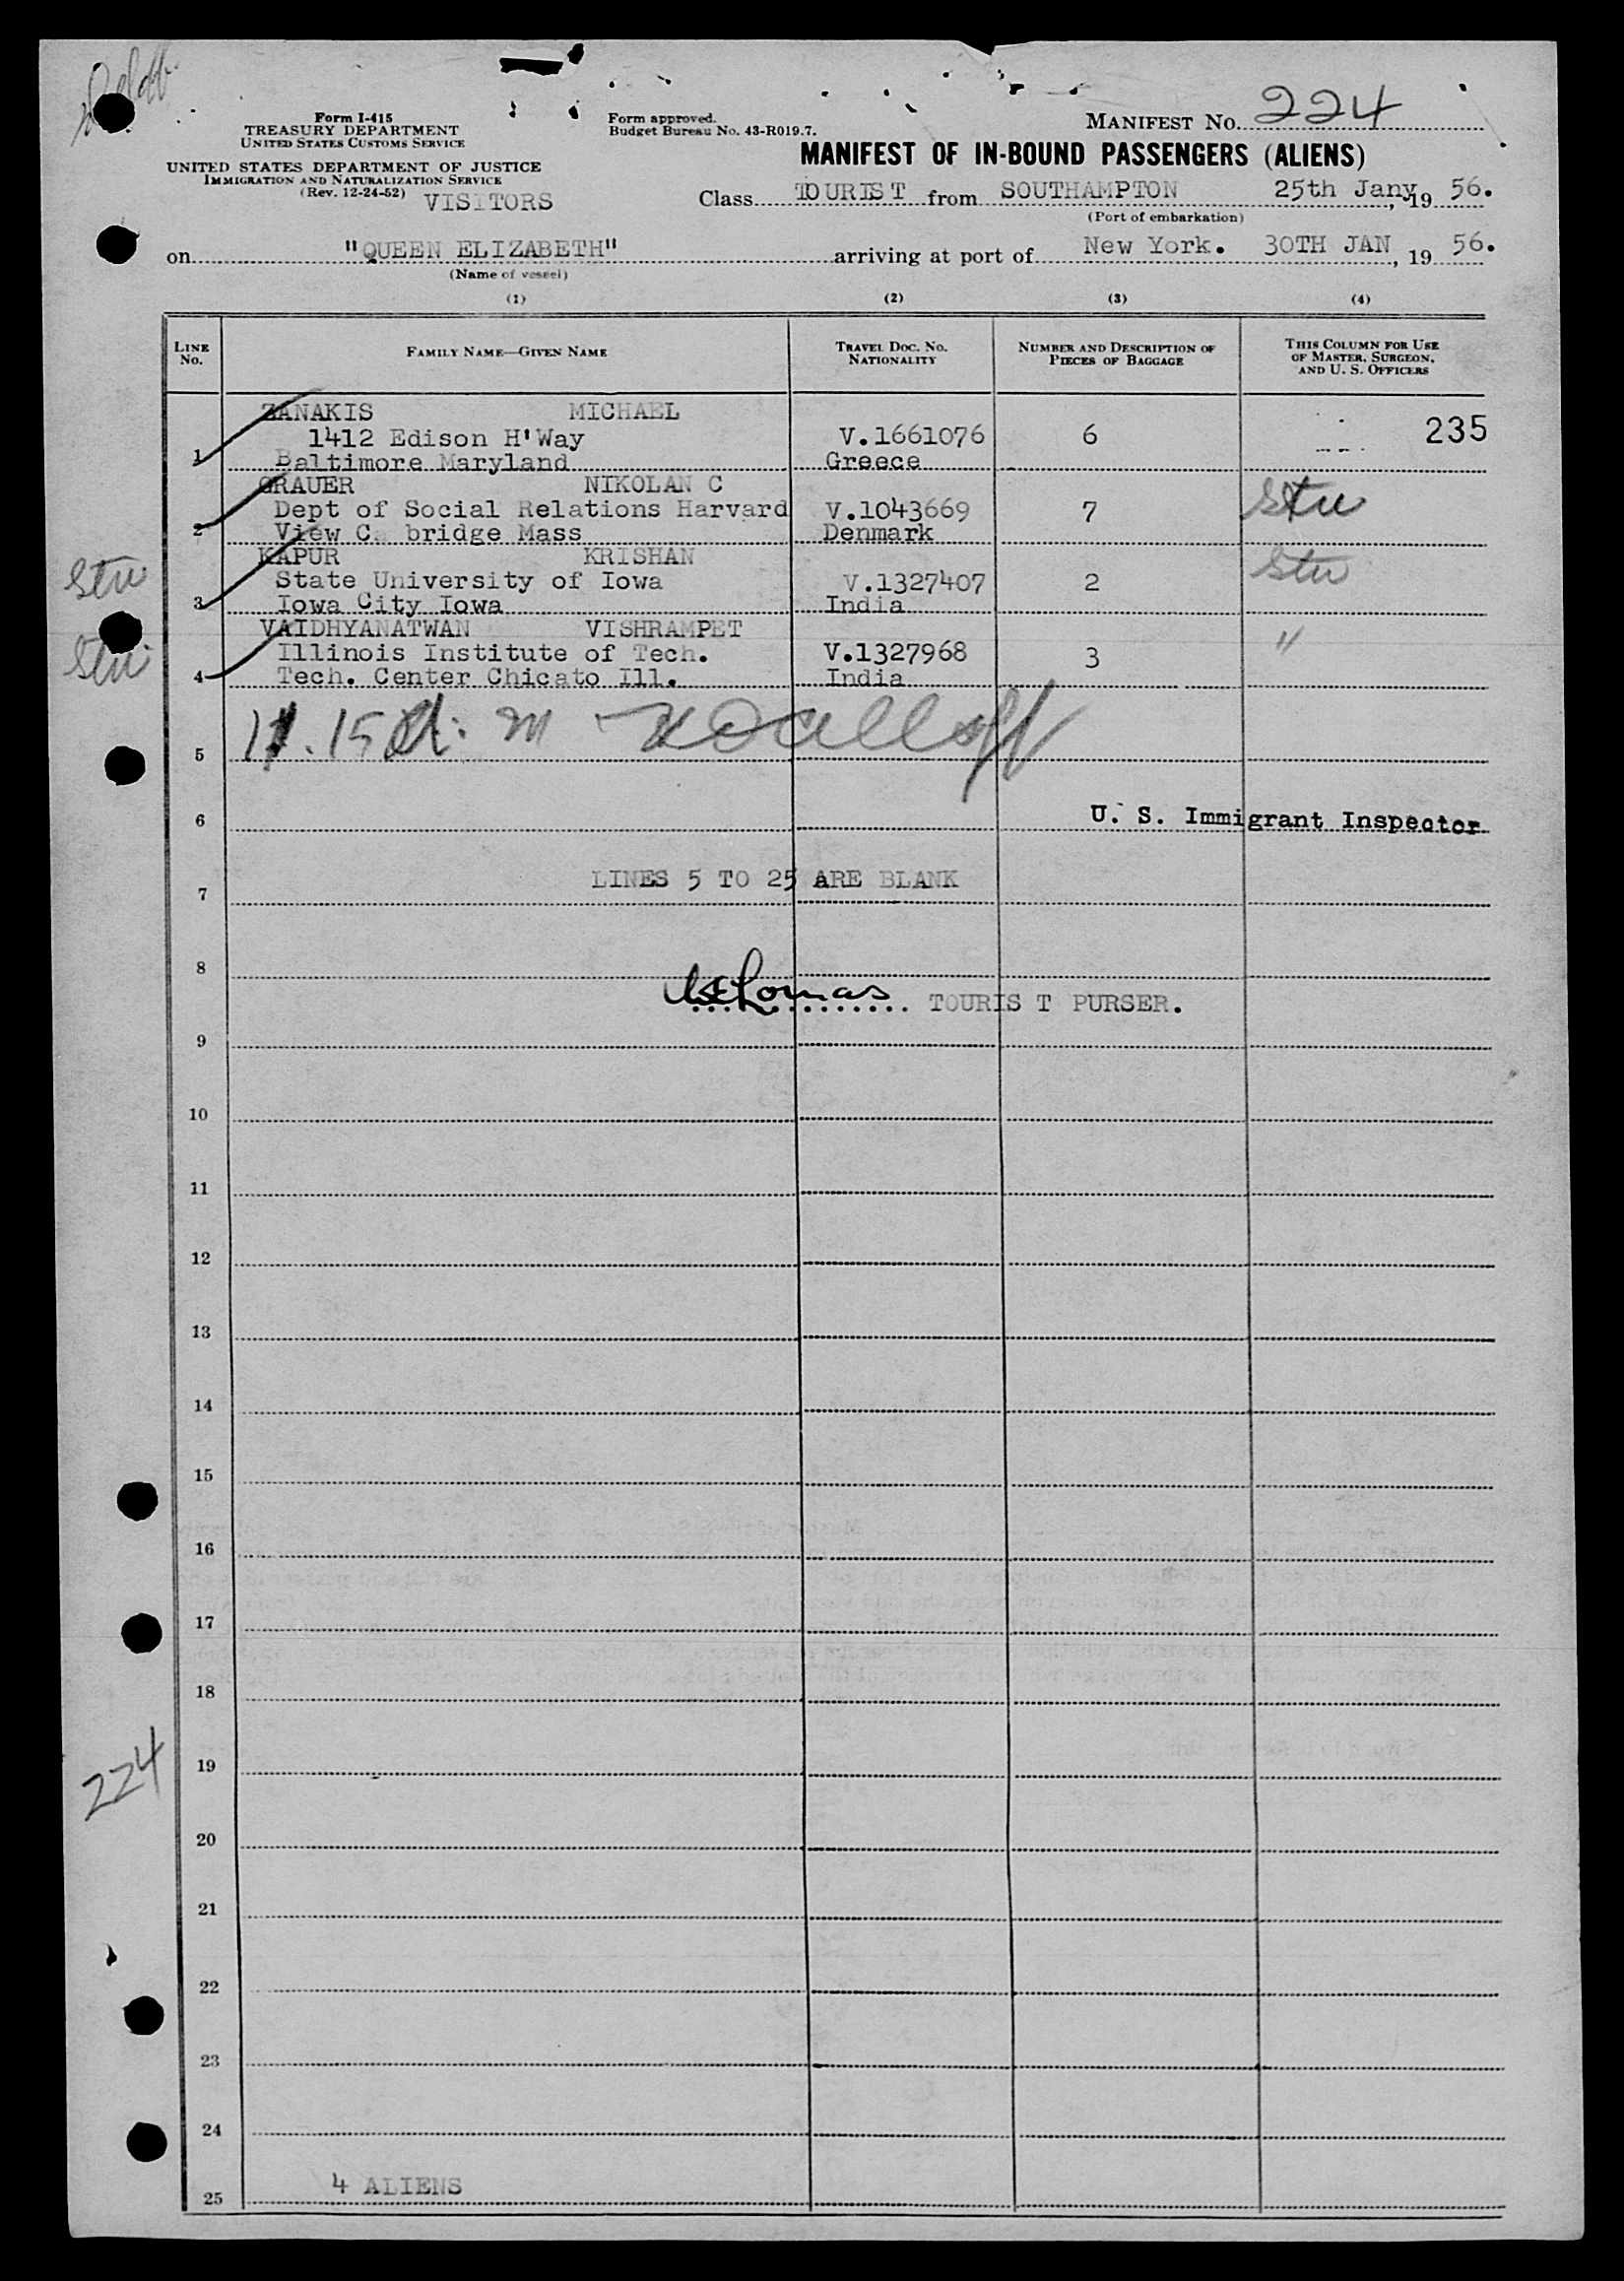 Form I-415
TREASURY DEPARTMENT
UNITED STATES CUSTOMS SERVICE
UNITED STATES DEPARTMENT OF JUSTICE
IMMIGRATION AND NATURALIZATION SERVICE
(Rev. 12-24-52) VISITORS
Form approved.
Budget Bureau No. 43-R019.7.
MANIFEST NO. 224
MANIFEST OF IN-BOUND PASSENGERS (ALIENS)
Class TOURIST from SOUTHAMPTON 25th Jany, 19 56.
(Port of embarkation)
on "QUEEN ELIZABETH" arriving at port of New York. 30TH JAN, 19 56.
(Name of vessel)
(1) (2) (3) (4)
LINE NO. FAMILY NAME—GIVEN NAME TRAVEL DOC. NO. NATIONALITY NUMBER AND DESCRIPTION OF PIECES OF BAGGAGE THIS COLUMN FOR USE OF MASTER, SURGEON, AND U. S. OFFICERS
ZANAKIS MICHAEL
1412 Edison H'Way V.1661076 6 235
1 Baltimore Maryland Greece
GRAUER NIKOLAN C
Dept of Social Relations Harvard V.1043669 7 Stu
2 View C. bridge Mass Denmark
KAPUR KRISHAN
Stu State University of Iowa V.1327407 2 Stu
3 Iowa City Iowa India
VAIDHYANATWAN VISHRAMPET
Stu Illinois Institute of Tech. V.1327968 3 "
4 Tech. Center Chicato Ill. India
5
U. S. Immigrant Inspector
6
LINES 5 TO 25 ARE BLANK
7
8
Lomas TOURIST PURSER.
9
10
11
12
13
14
15
16
17
18
224
19
20
21
22
23
24
4 ALIENS
25